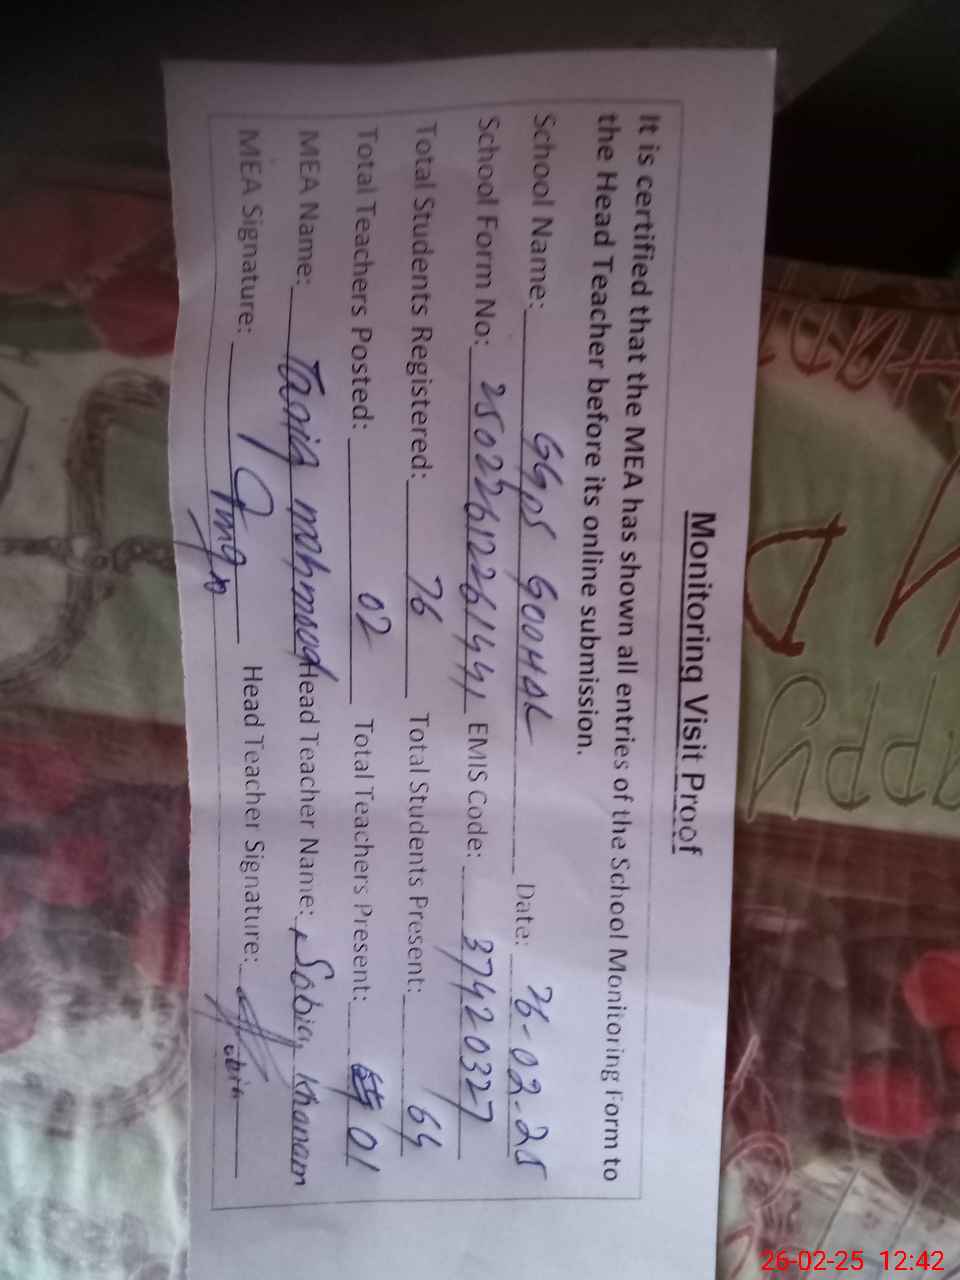 Monitoring Visit Proof
It is certified that the MEA has shown all entries of the School Monitoring Form to
the Head Teacher before its online submission.
School Name: GGPS GOOHAL Date: 26-02-25
School Form No: 25022612261441 EMIS Code: 37420327
Total Students Registered: 76 Total Students Present: 64
Total Teachers Posted: 02 Total Teachers Present: 01
MEA Name: Tania mehmood Head Teacher Name: Sobia Khanam
MEA Signature: Head Teacher Signature:
26-02-25 12:42